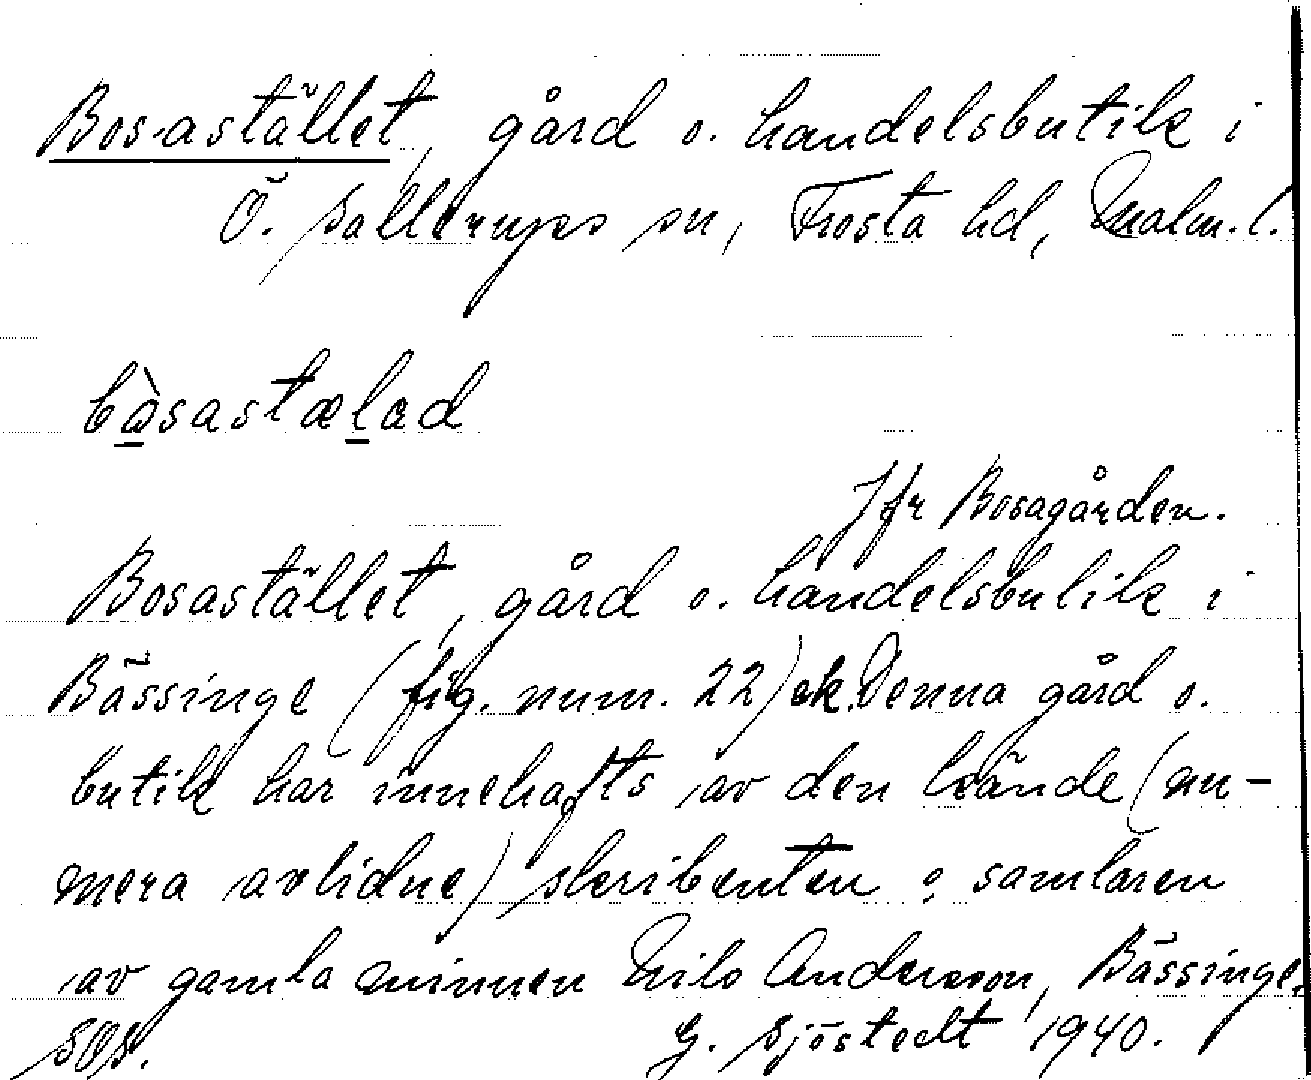 Bosastället, gård o. handelsbutik i
Ö. Sallerups sn, Frosta hd, Malm. l.
bòsastælæd
Jfr Bosagården.
Bosastället, gård o. handelsbutik i
Bässinge (fig. num. 22) ek. Denna gård o.
butik har innehafts av den kände (nu-
mera avlidne) skribenten o samlaren
av gamla minnen Nils Andersson, Bässinge.
SOS. G. Sjöstedt 1940.